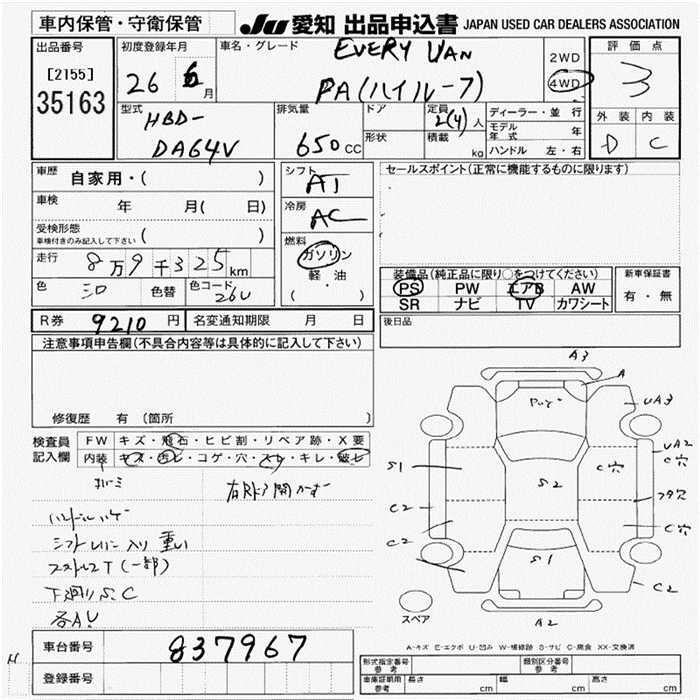 車内保管・守衛保管
JU 愛知 出品申込書 JAPAN USED CAR DEALERS ASSOCIATION
出品番号
[2155]
35163
初度登録年月
26 6 月
車名・グレード
EVERY VAN
PA(ハイルーフ)
2WD
4WD
評価点
3
外装 内装
D C
型式
HBD-
DA64V
排気量
650 CC
ドア
形状
定員
2(4) 人
積載
kg
ディーラー・並行
モデル年式 年
ハンドル 左・右
車歴
自家用・( )
車検
年 月( 日)
受検形態
車検付きのみ記入して下さい ( )
走行
8万9千325km
色
シロ
色替
色コード
26U
シフト
AT
冷房
AC
燃料
ガソリン
軽・油
( ・ )
セールスポイント(正常に機能するものに限ります)
装備品(純正品に限り○をつけてください)
PS PW エアB AW
SR ナビ TV カワシート
新車保証書
有・無
R券 9210 円 名変通知期限 月 日
後日品
注意事項申告欄(不具合内容等は具体的に記入して下さい)
修復歴 有 (箇所 )
検査員記入欄
FW キズ・飛石・ヒビ割・リペア跡・X要
内装 キズ・汚レ・コゲ・穴・スレ・キレ・破レ
右Rドア開かず
ハンドルハゲ
シフトレバー入り重い
下廻りS.C
各A.U
A3
A
UA3
UA2
C穴
フタ穴
C穴
C2
S1
C2
C2
S2
S1
A2
スペア
A-キズ E-エクボ U-凹み W-補修跡 S-サビ C-腐食 XX-交換済
車台番号 837967
登録番号
型式指定番号 参考
類別区分番号 参考
車庫証明用 参考
長さ cm 幅 cm 高さ cm